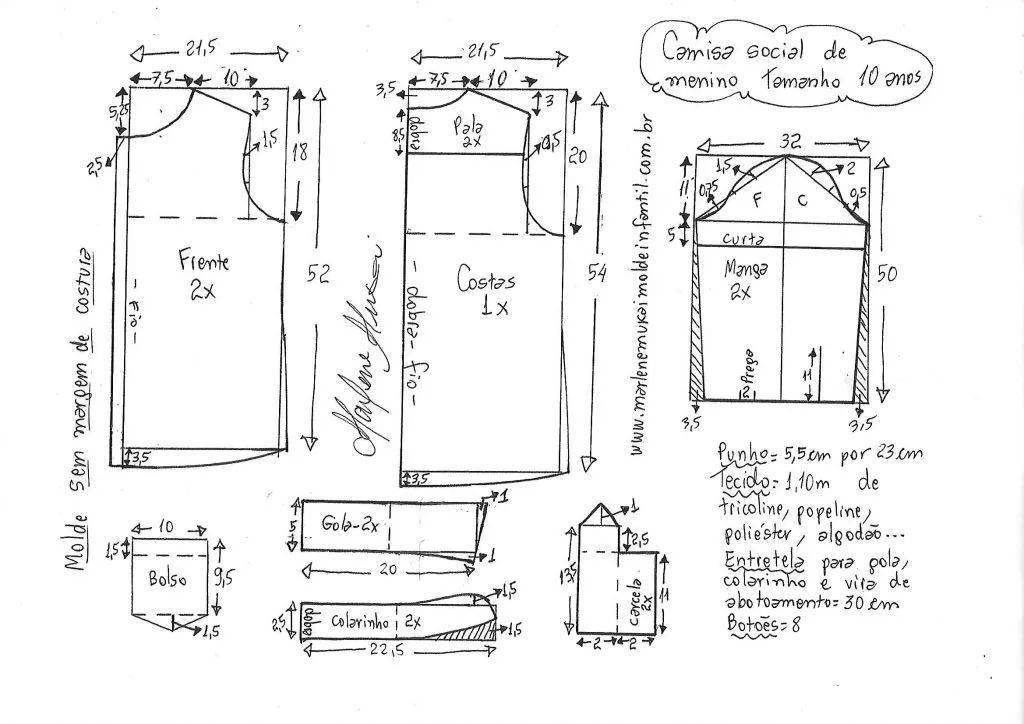 Camisa social de
menino tamanho 10 anos
21,5
7,5
10
5,25
3
1,5
18
2,5
Frente
2x
52
- Fio -
3,5
21,5
7,5
10
3,5
3
8,5
dobra
Pala
2x
20
Costas
1x
54
- dobra - Fio -
3,5
Marlene Mukai
Molde sem margem de costura
www.marlenemukaimoldeinfantil.com.br
32
11
1,5
2
0,75
F
C
0,5
5
curta
Manga
2x
50
Prega
2
11
3,5
3,5
Punho= 5,5cm por 23cm
Tecido= 1,10m de
tricoline, popeline,
poliéster, algodão...
Entretela para gola,
colarinho e vira de
abotoamento= 30 cm
Botões= 8
10
1,5
Bolso
9,5
1,5
5
Gola-2x
1
1
20
2,5
dobra
Colarinho 2x
1,5
1,5
22,5
1
2,5
13,5
carcela
2x
11
2
2